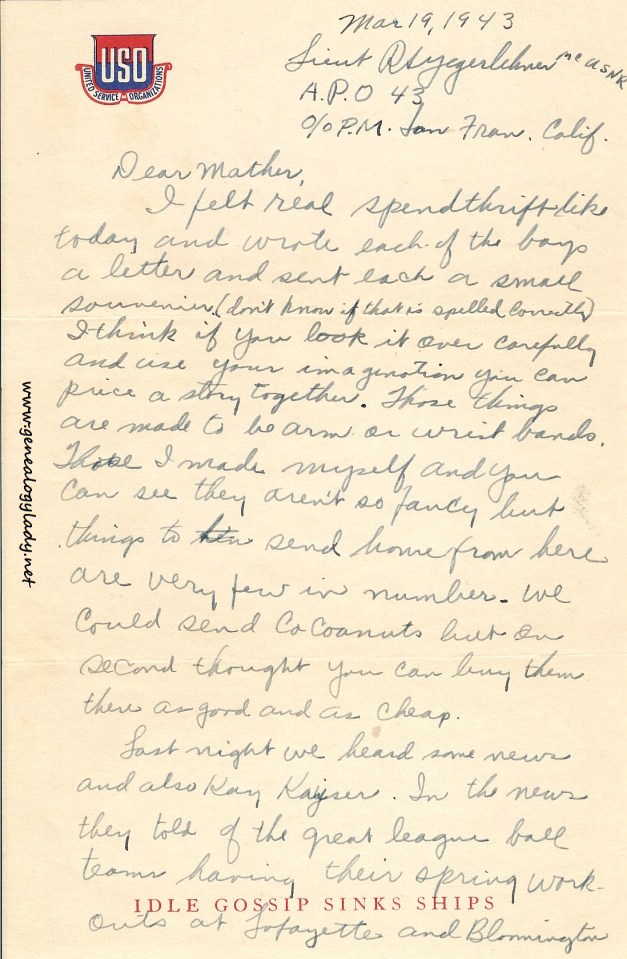 Mar 19, 1943
USO
UNITED SERVICE ORGANIZATIONS
Lieut RSYegerlehner MC USNR
A.P.O 43
c/o P.M. San Fran. Calif.
Dear Mather,
I felt real spendthrift like
today and wrote each of the boys
a letter and sent each a small
souvenier. (don't know if that is spelled correctly)
I think if you look it over carefully
and use your imagination you can
piece a story together. Those things
are made to be arm or wrist bands.
Those I made myself and you
can see they aren't so fancy but
things to send home from here
are very few in number - we
could send Cocoanuts but on
second thought you can buy them
there as good and as cheap.
Last night we heard some news
and also Kay Kayser. In the news
they told of the great league ball
teams having their spring work-
IDLE GOSSIP SINKS SHIPS
outs at Lafayette and Bloomington
www.genealogylady.net